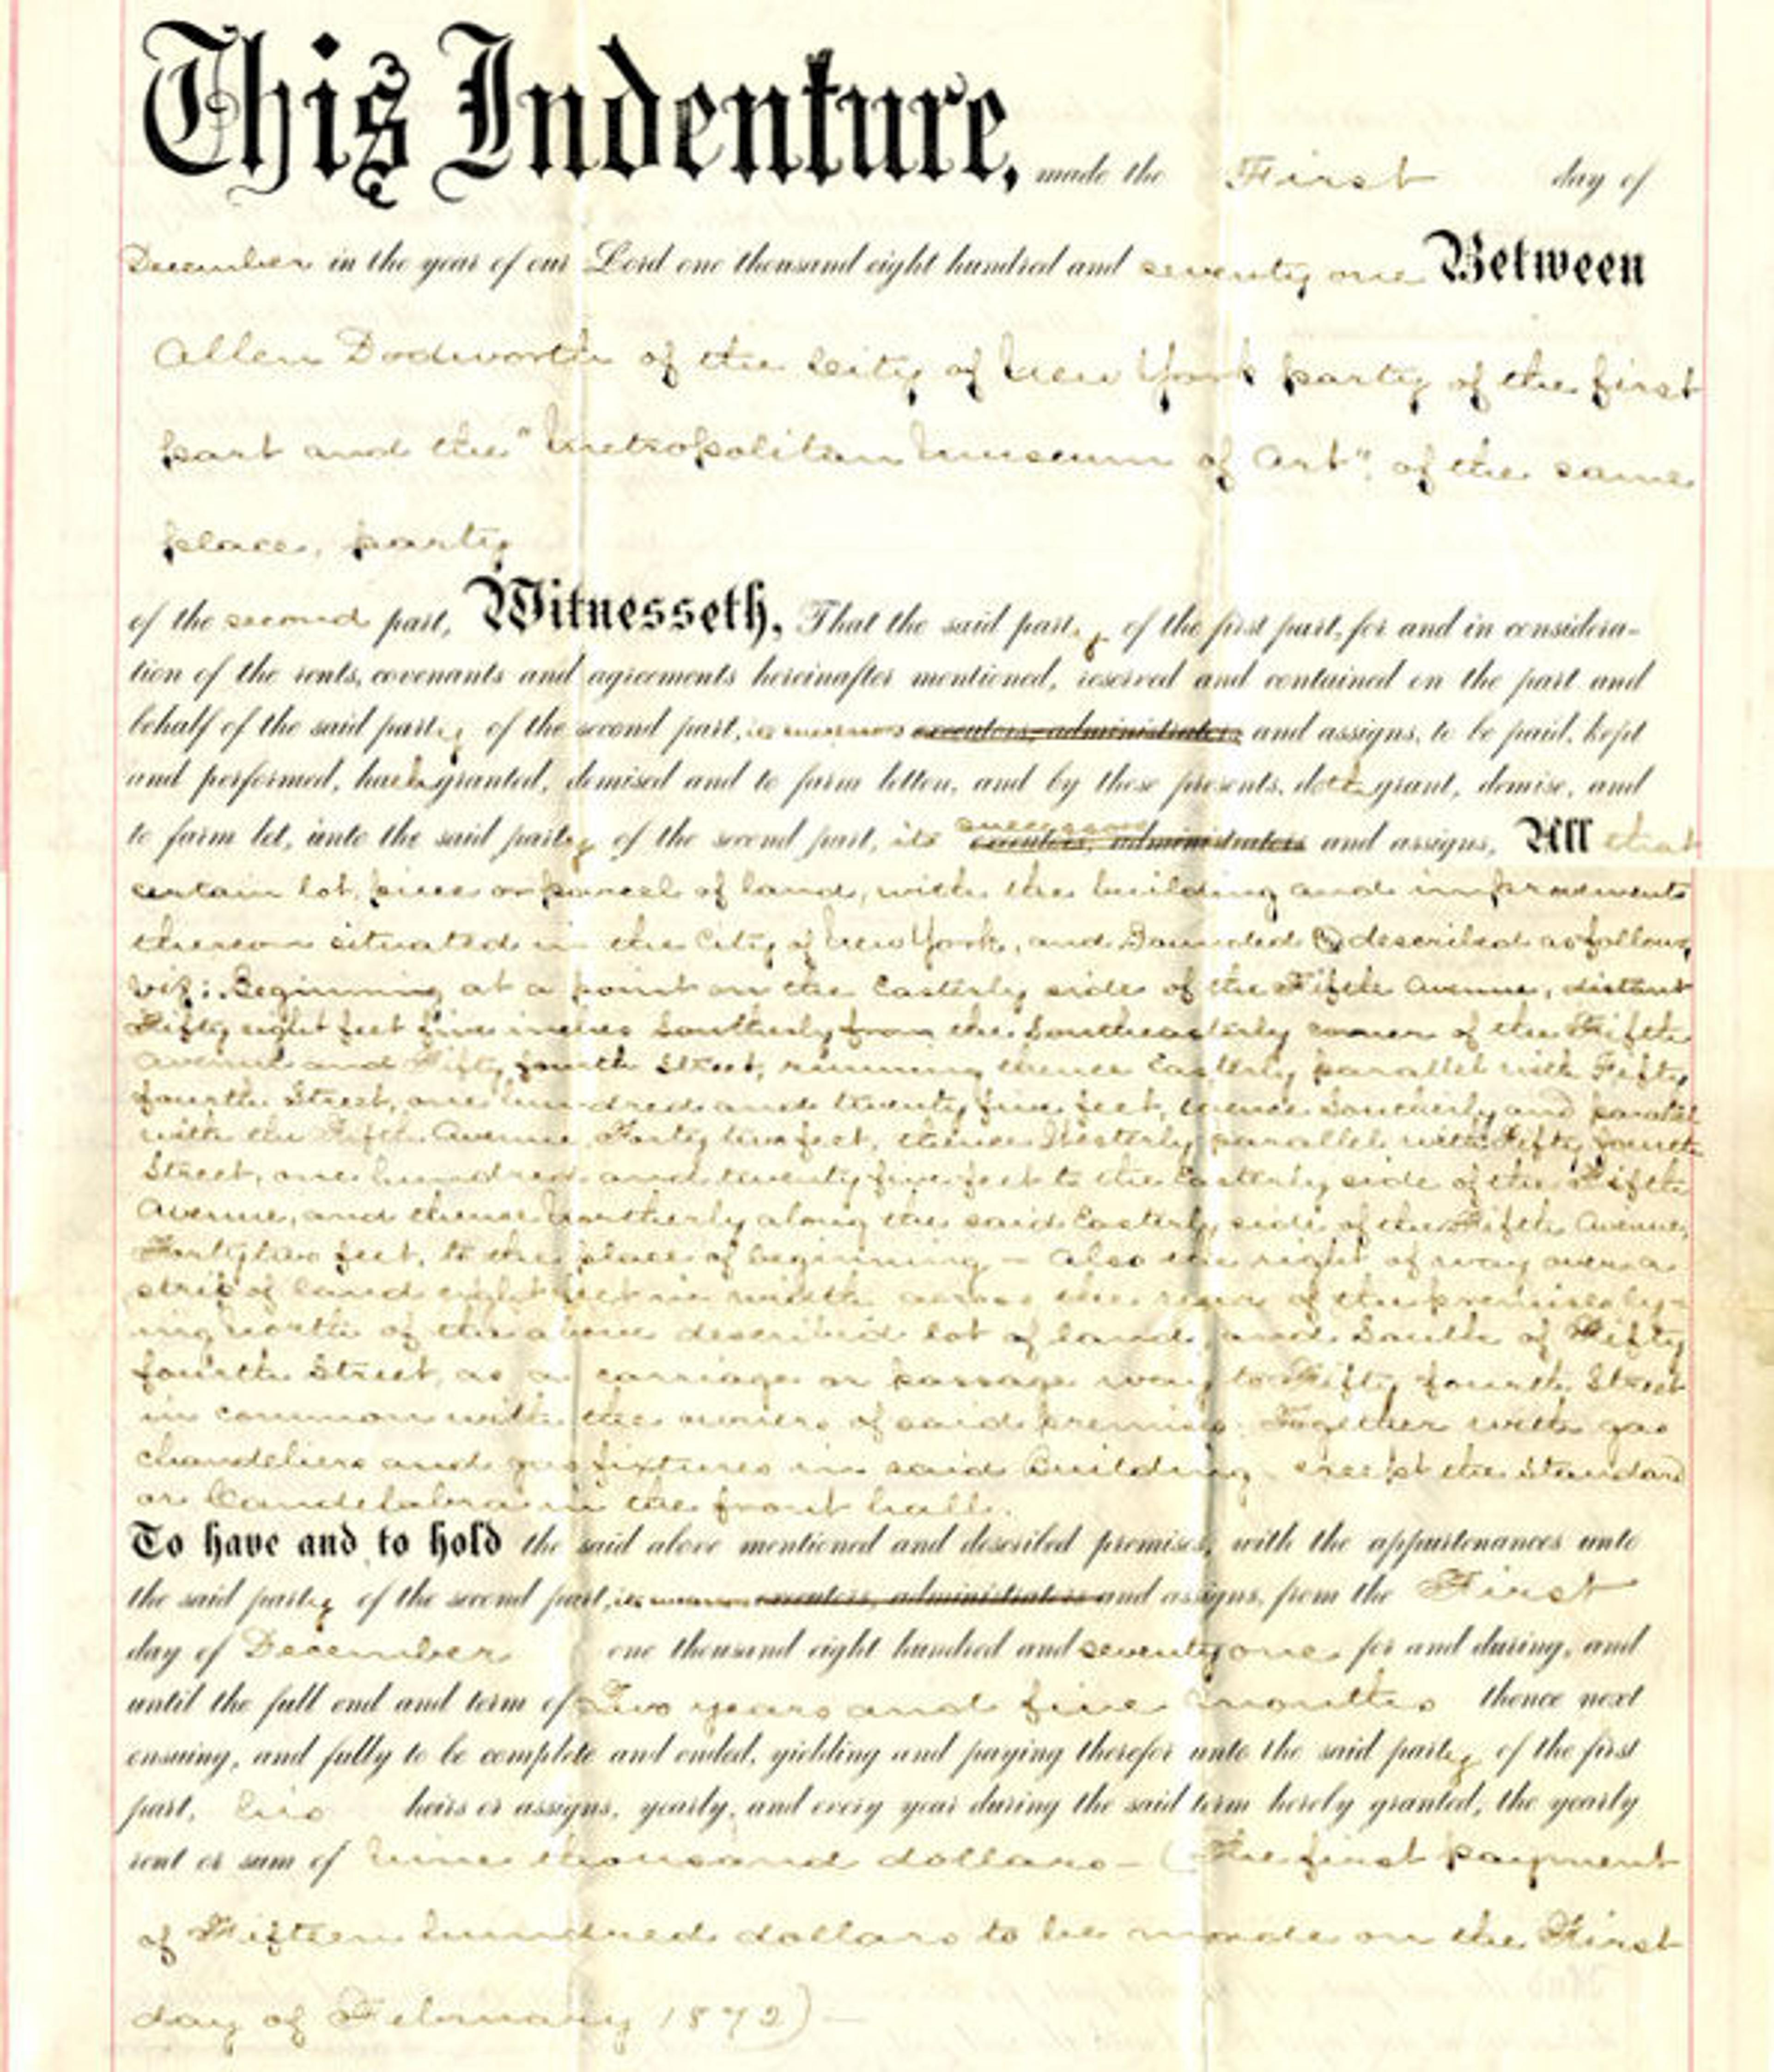 This Indenture, made the First day of
December in the year of our Lord one thousand eight hundred and seventy one Between
Allen Dodworth of the City of New York party of the first
part and the "Metropolitan Museum of Art", of the same
place, party
of the second part, Witnesseth, That the said party of the first part, for and in considera-
tion of the rents, covenants and agreements hereinafter mentioned, reserved and contained on the part and
behalf of the said party of the second part, its successors executors, administrators and assigns, to be paid, kept
and performed, hath granted, demised and to farm letten, and by these presents, doth grant, demise, and
to farm let, unto the said party of the second part, its successors executors, administrators and assigns, All that
certain lot, piece or parcel of land, with the building and improvements
thereon situated in the City of New York, and Bounded & described as follows,
viz: Beginning at a point on the Easterly side of the Fifth Avenue, distant
Fifty eight feet five inches Southerly from the Southeasterly corner of the Fifth
Avenue and Fifty fourth Street, running thence Easterly parallel with Fifty
fourth Street, one hundred and twenty five feet, thence Southerly and parallel
with the Fifth Avenue Forty two feet, thence Westerly parallel with Fifty fourth
Street, one hundred and twenty five feet to the Easterly side of the Fifth
Avenue, and thence Northerly along the said Easterly side of the Fifth Avenue,
Forty two feet, to the place of beginning – Also the right of way over a
strip of land eight feet in width across the rear of the premises ly-
ing north of the above described lot of land and South of Fifty
fourth Street, as a carriage or passage way to Fifty fourth Street
in common with the owners of said premises. Together with gas
chandeliers and gas fixtures in said Building except the Standard
or Candelabra in the front hall.
To have and to hold the said above mentioned and described premises, with the appurtenances unto
the said party of the second part, its successors executors, administrators and assigns, from the First
day of December one thousand eight hundred and seventy one for and during, and
until the full end and term of Two years and five months thence next
ensuing, and fully to be complete and ended, yielding and paying therefor unto the said party of the first
part, his heirs or assigns, yearly, and every year during the said term hereby granted, the yearly
rent or sum of Nine thousand dollars – (The first payment
of Fifteen hundred dollars to be made on the First
day of February 1872) –